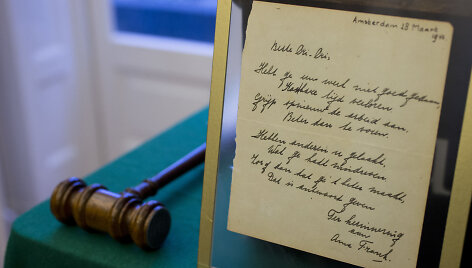 Amsterdam 28 Maart
1942.
Beste Cri-Cri,
Hebt ge uw werk niet goed gedaan,
Kostbare tijd verloren,
Grijp opnieuw de arbeid aan,
Beter dan te voren.
Hebben anderen u gelaakt,
Wat ge hadt misdreven,
Zorg dan dat ge 't beter maakt,
Dat is antwoord geven
Ter herinnering
aan
Anne Frank.